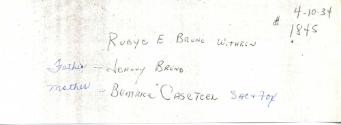 4-10-34
# 1845
Rubye E Bruno Withrow
Father - Johnny Bruno
Mother - Beatrice Casteel Sac & Fox